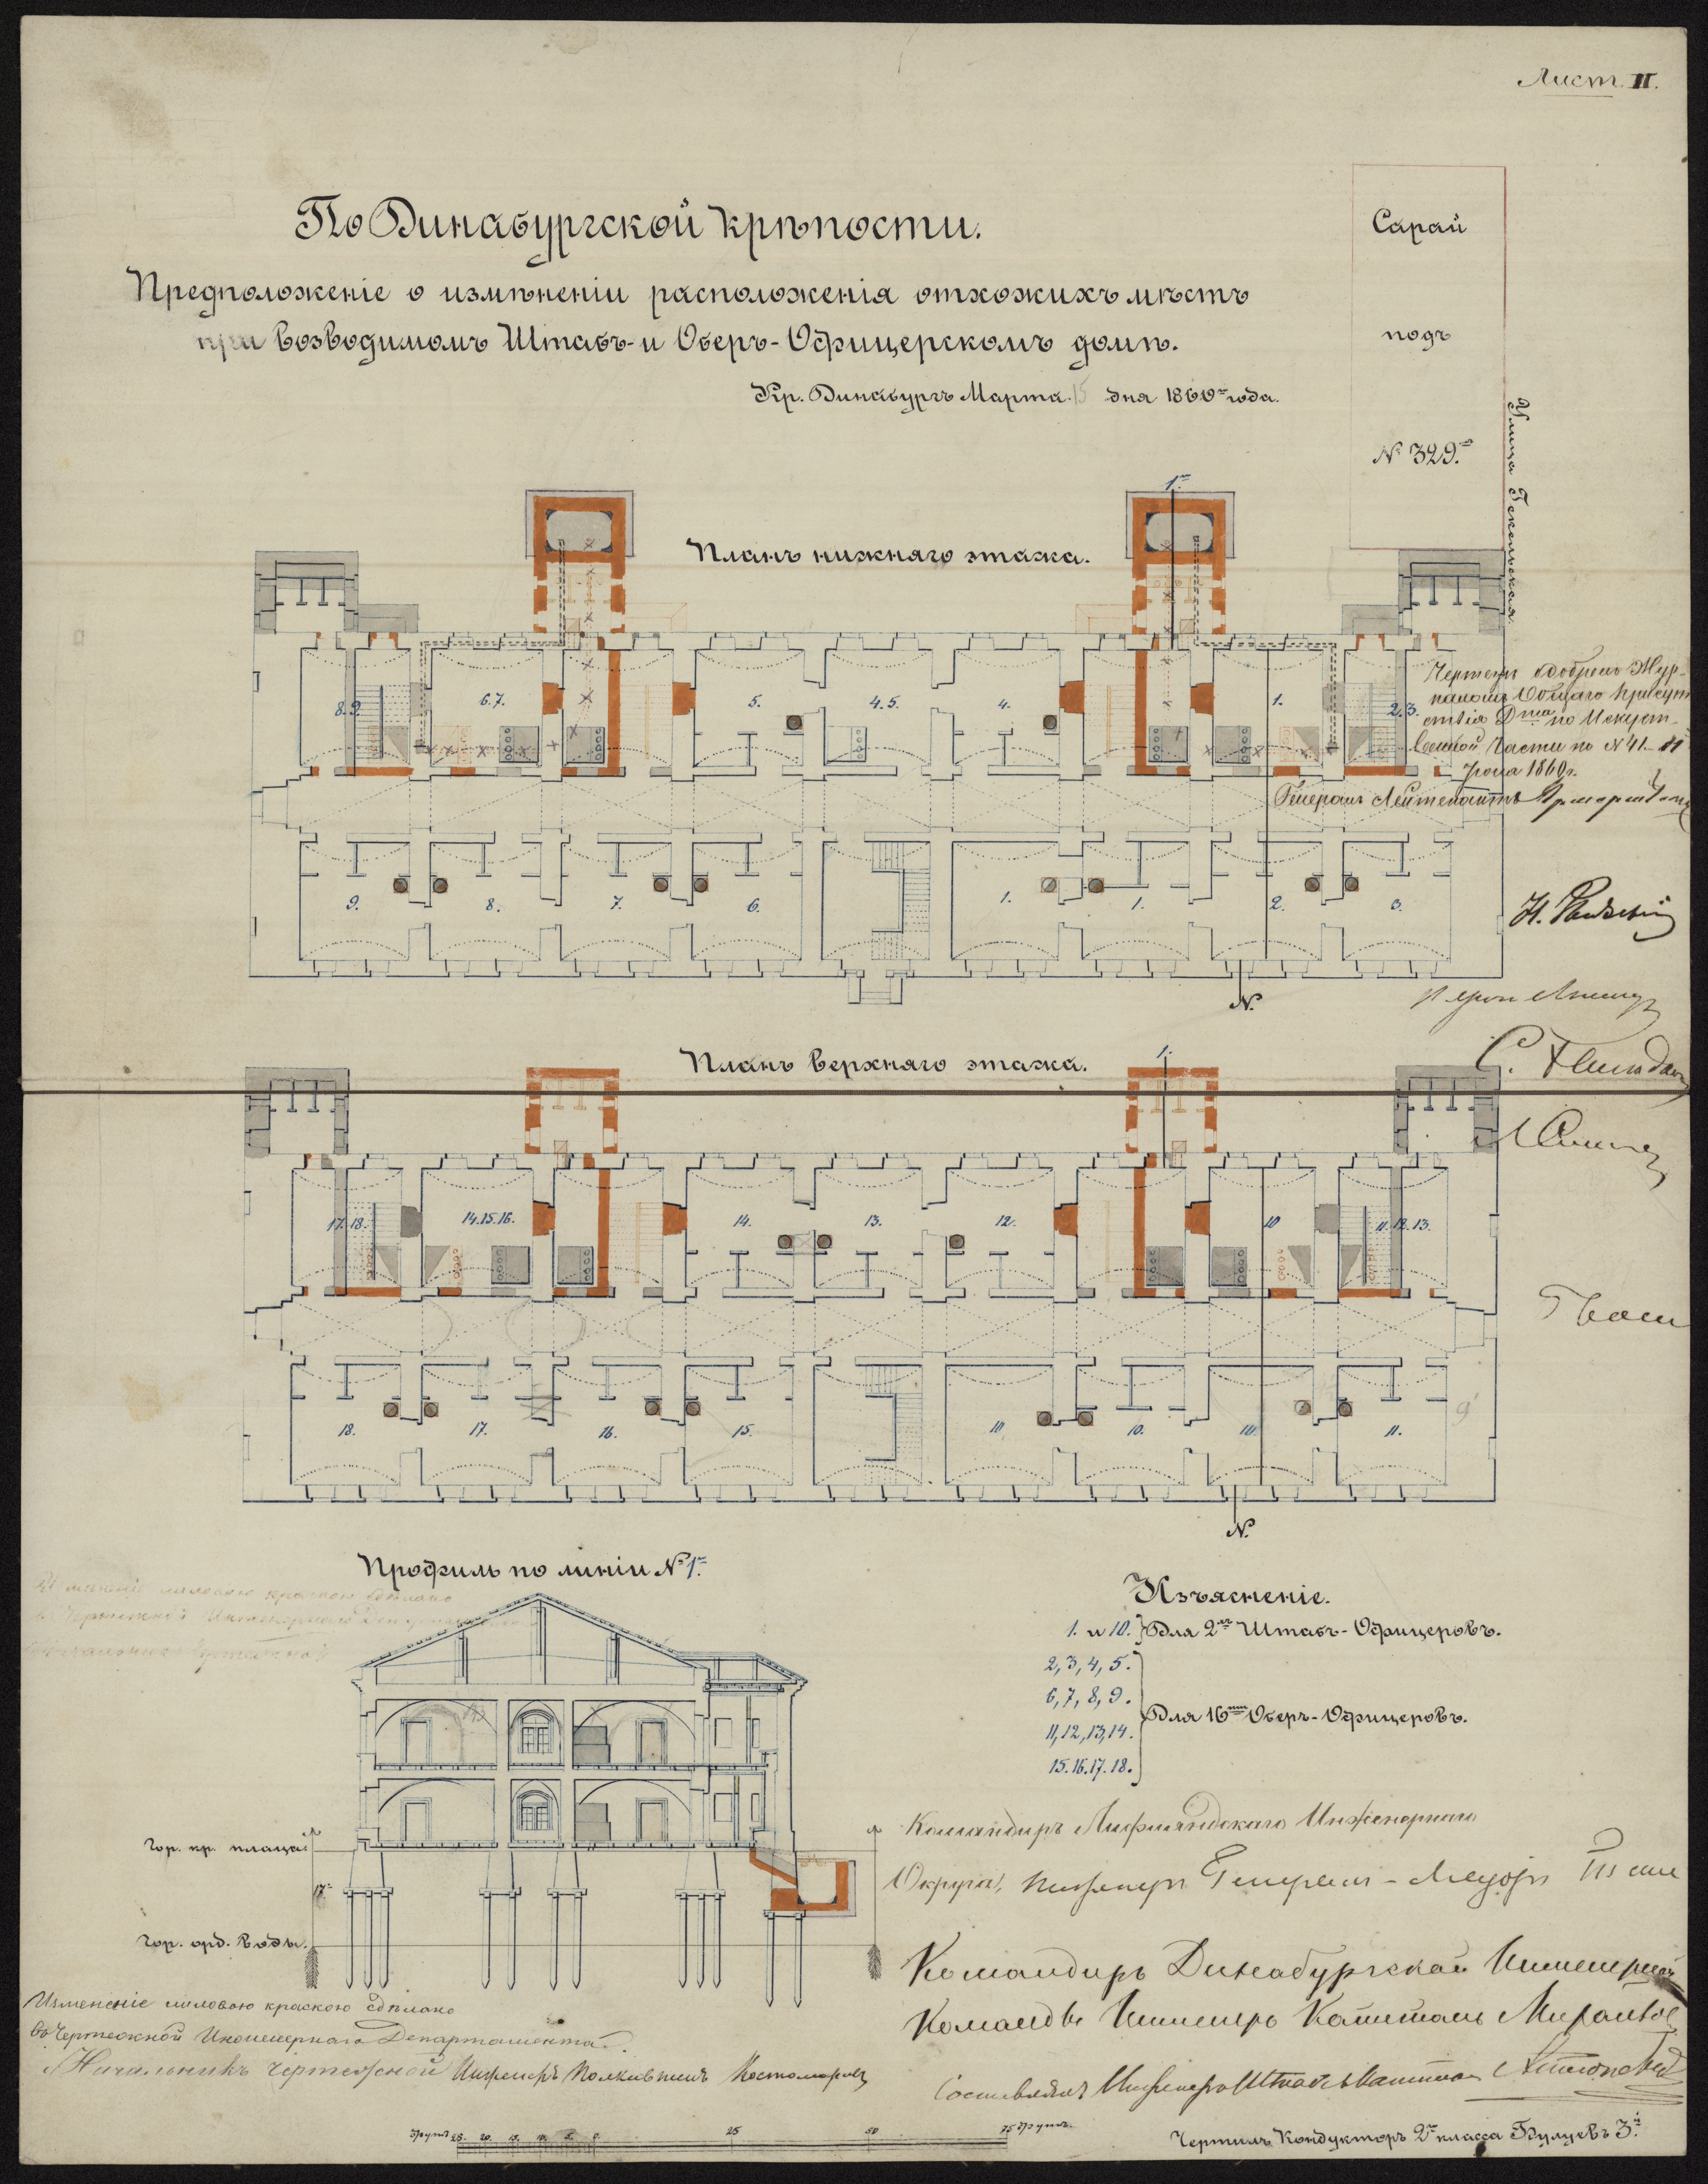 Лист. II.
По Динабургской крѣпости.
Предположеніе о измѣненіи расположенія отхожихъ мѣстъ
при возводимомъ Штабъ- и Оберъ-Офицерскомъ домѣ.
Кр. Динабургъ Марта 15 дня 1860го года.
Сарай
подъ
№ 329.мъ
Улица
1.
Планъ нижняго этажа.
8.9.
6.7.
5.
4.5.
4.
1.
2.3.
Чертежъ одобренъ Жур-
наломъ Общаго Присут
ствія Дта по Искуст-
венной Части по № 41- 11
1860 г.
Генералъ Лейтенантъ
9.
8.
7.
6.
1.
1.
2.
3.
№
Планъ верхняго этажа.
1.
17.18.
14.15.16.
14.
13.
12.
10
11.12.13.
18.
17.
16.
15.
10
10.
10.
11.
9
№
Профиль по линіи № 1й
Гор. кр. плаца
1й
Гор. орд. воды.
Изъясненіе.
1. и 10. } Для 2хъ Штабъ-Офицеровъ.
2, 3, 4, 5.
6, 7, 8, 9.
Для 16ти Оберъ-Офицеровъ.
11, 12, 13, 14.
15. 16. 17. 18.
Командиръ Лифляндскаго Инженернаго
Округа, Инженеръ Генералъ-Маіоръ
Командиръ Динабургской Инженерной
Команды Инженеръ Капитанъ
Составлялъ Инженеръ Штабсъ Капитанъ
Измененіе лиловою краскою сдѣлано
въ Чертежной Инженернаго Департамента.
Начальникъ Чертежной Инженеръ Полковникъ Костомаровъ
25. 20. 15. 10. 5. 0. 25 50 75 футъ.
Чертилъ Кондукторъ 2го класса Булуевъ 3й